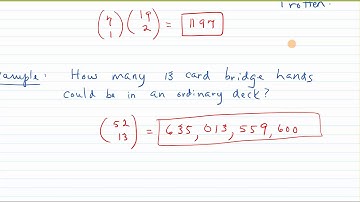 1 rotten.
(7 1) (19 2) = 1197
ample: How many 13 card bridge hands
could be in an ordinary deck?
(52 13) = 635,013,559,600